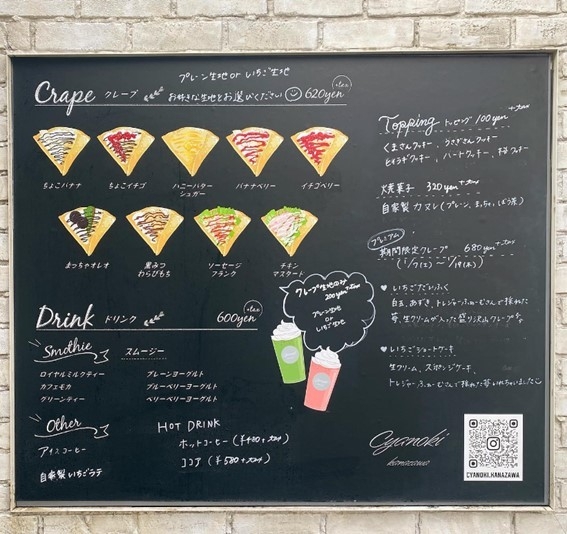 プレーン生地 or いちご生地
Crape クレープ
お好きな生地をお選びください 620yen +tax
ちょこバナナ
ちょこイチゴ
ハニーバター
シュガー
バナナベリー
イチゴベリー
まっちゃオレオ
黒みつ
わらびもち
ソーセージ
フランク
チキン
マスタード
クレープ生地のみ
200yen+tax
プレーン生地
or
いちご生地
Drink ドリンク
600yen +tax
Smothie スムージー
ロイヤルミルクティー
カフェモカ
グリーンティー
プレーンヨーグルト
ブルーベリーヨーグルト
ベリーベリーヨーグルト
Other
アイスコーヒー
自家製いちごラテ
HOT DRINK
ホットコーヒー (¥480+tax)
ココア (¥580+tax)
Topping トッピング 100yen +tax
くまさんクッキー、うさぎさんクッキー
ハートクッキー、桜クッキー
焼菓子 320yen+tax
自家製カヌレ(プレーン、まっちゃ、ほうじ茶)
プレミアム
期間限定クレープ 680yen+tax
♥ いちごだいふく
白玉、あずき、トレジャーふぁーむさんで採れた
苺、生クリームが入った盛り沢山クレープ
♥ いちごショートケーキ
生クリーム、スポンジケーキ、
トレジャーふぁーむさんで採れた苺
Cyanoki
kanazawa
CYANOKI.KANAZAWA